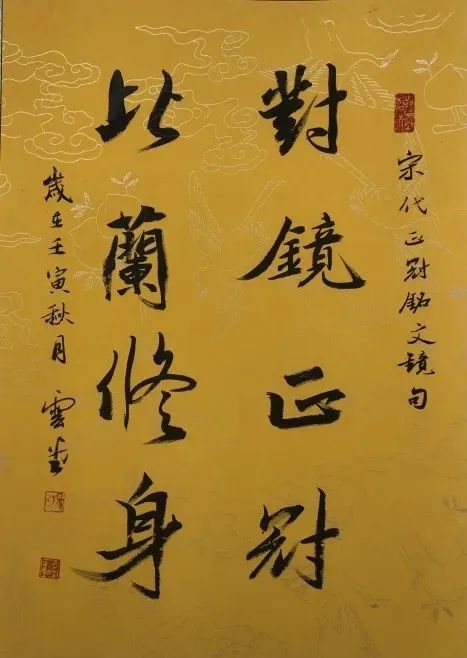 宋代正冠銘文鏡句
對鏡正冠
比蘭修身
歲在壬寅秋月 雲